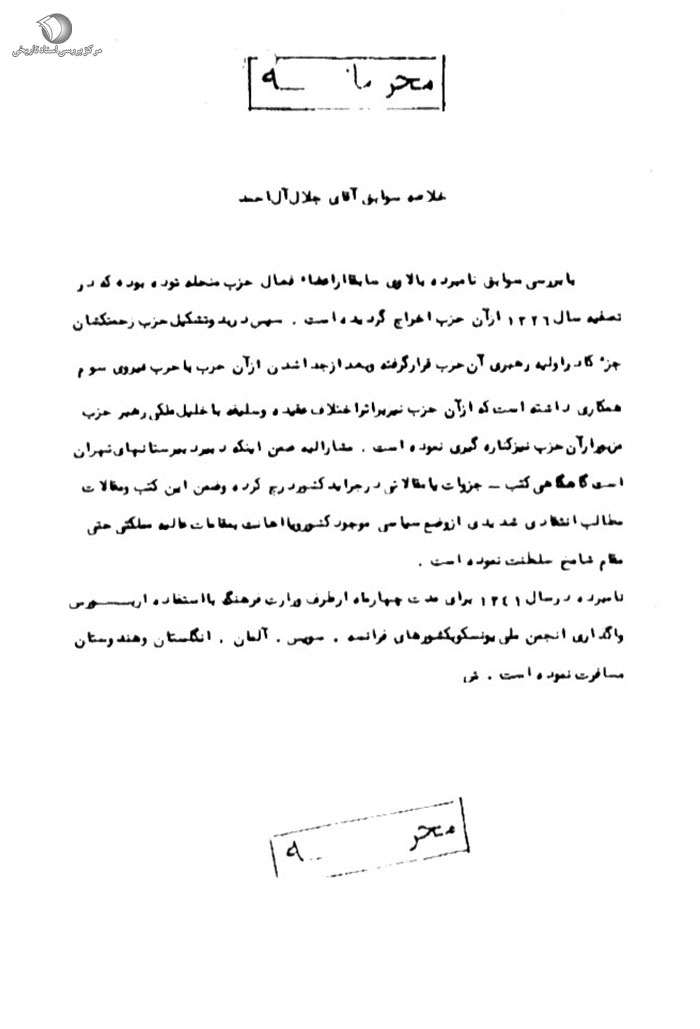 مرکز بررسی اسناد تاریخی
محرمانه
خلاصه سوابق آقای جلال آل احمد
با بررسی سوابق نامبرده بالا وی سابقا از اعضاء فعال حزب منحله توده بوده که در
تصفیه سال ۱۳۲۶ ازآن حزب اخراج گردیده است . سپس در بدو تشکیل حزب زحمتکشان
جزء کادر اولیه رهبری آن حزب قرار گرفته و بعد از جدا شدن ازآن حزب با حزب نیروی سوم
همکاری داشته است که ازآن حزب نیز براثر اختلاف عقیده و سلیقه با خلیل ملکی رهبر حزب
مزبور ازآن حزب نیز کناره گیری نموده است . مشارالیه ضمن اینکه دبیر دبیرستانهای تهران
است گاهگاهی کتب - جزوات یا مقالاتی در جراید کشور درج کرده وضمن این کتب ومقالات
مطالب انتقادی شدیدی ازوضع سیاسی موجود کشور ویا اهانت بمقامات عالیه مملکتی حتی
مقام شامخ سلطنت نموده است .
نامبرده درسال ۱۳۴۱ برای مدت چهارماه ازطرف وزارت فرهنگ با استفاده از بـــورس
واگذاری انجمن ملی یونسکو بکشورهای فرانسه . سویس . آلمان . انگلستان وهندوستان
مسافرت نموده است . ش
محر ه